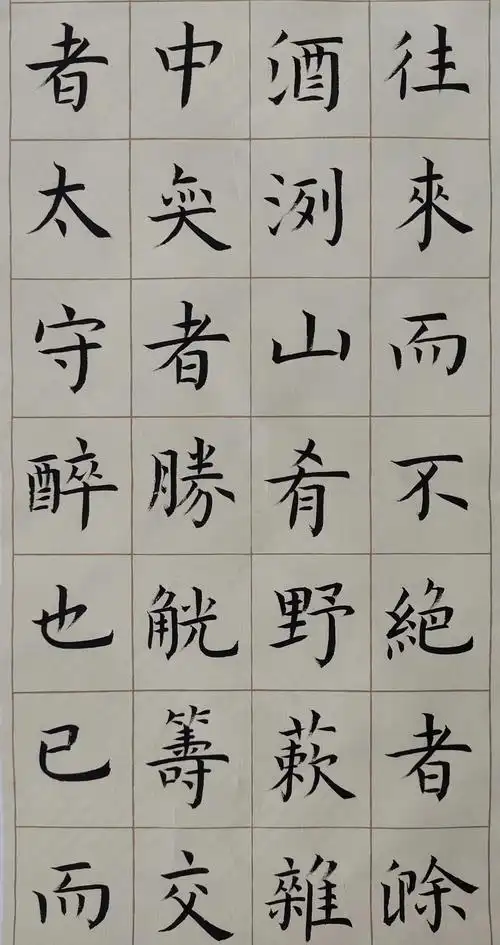 往來而不絶者滁
酒洌山肴野蔌雜
中奕者勝觥籌交
者太守醉也已而